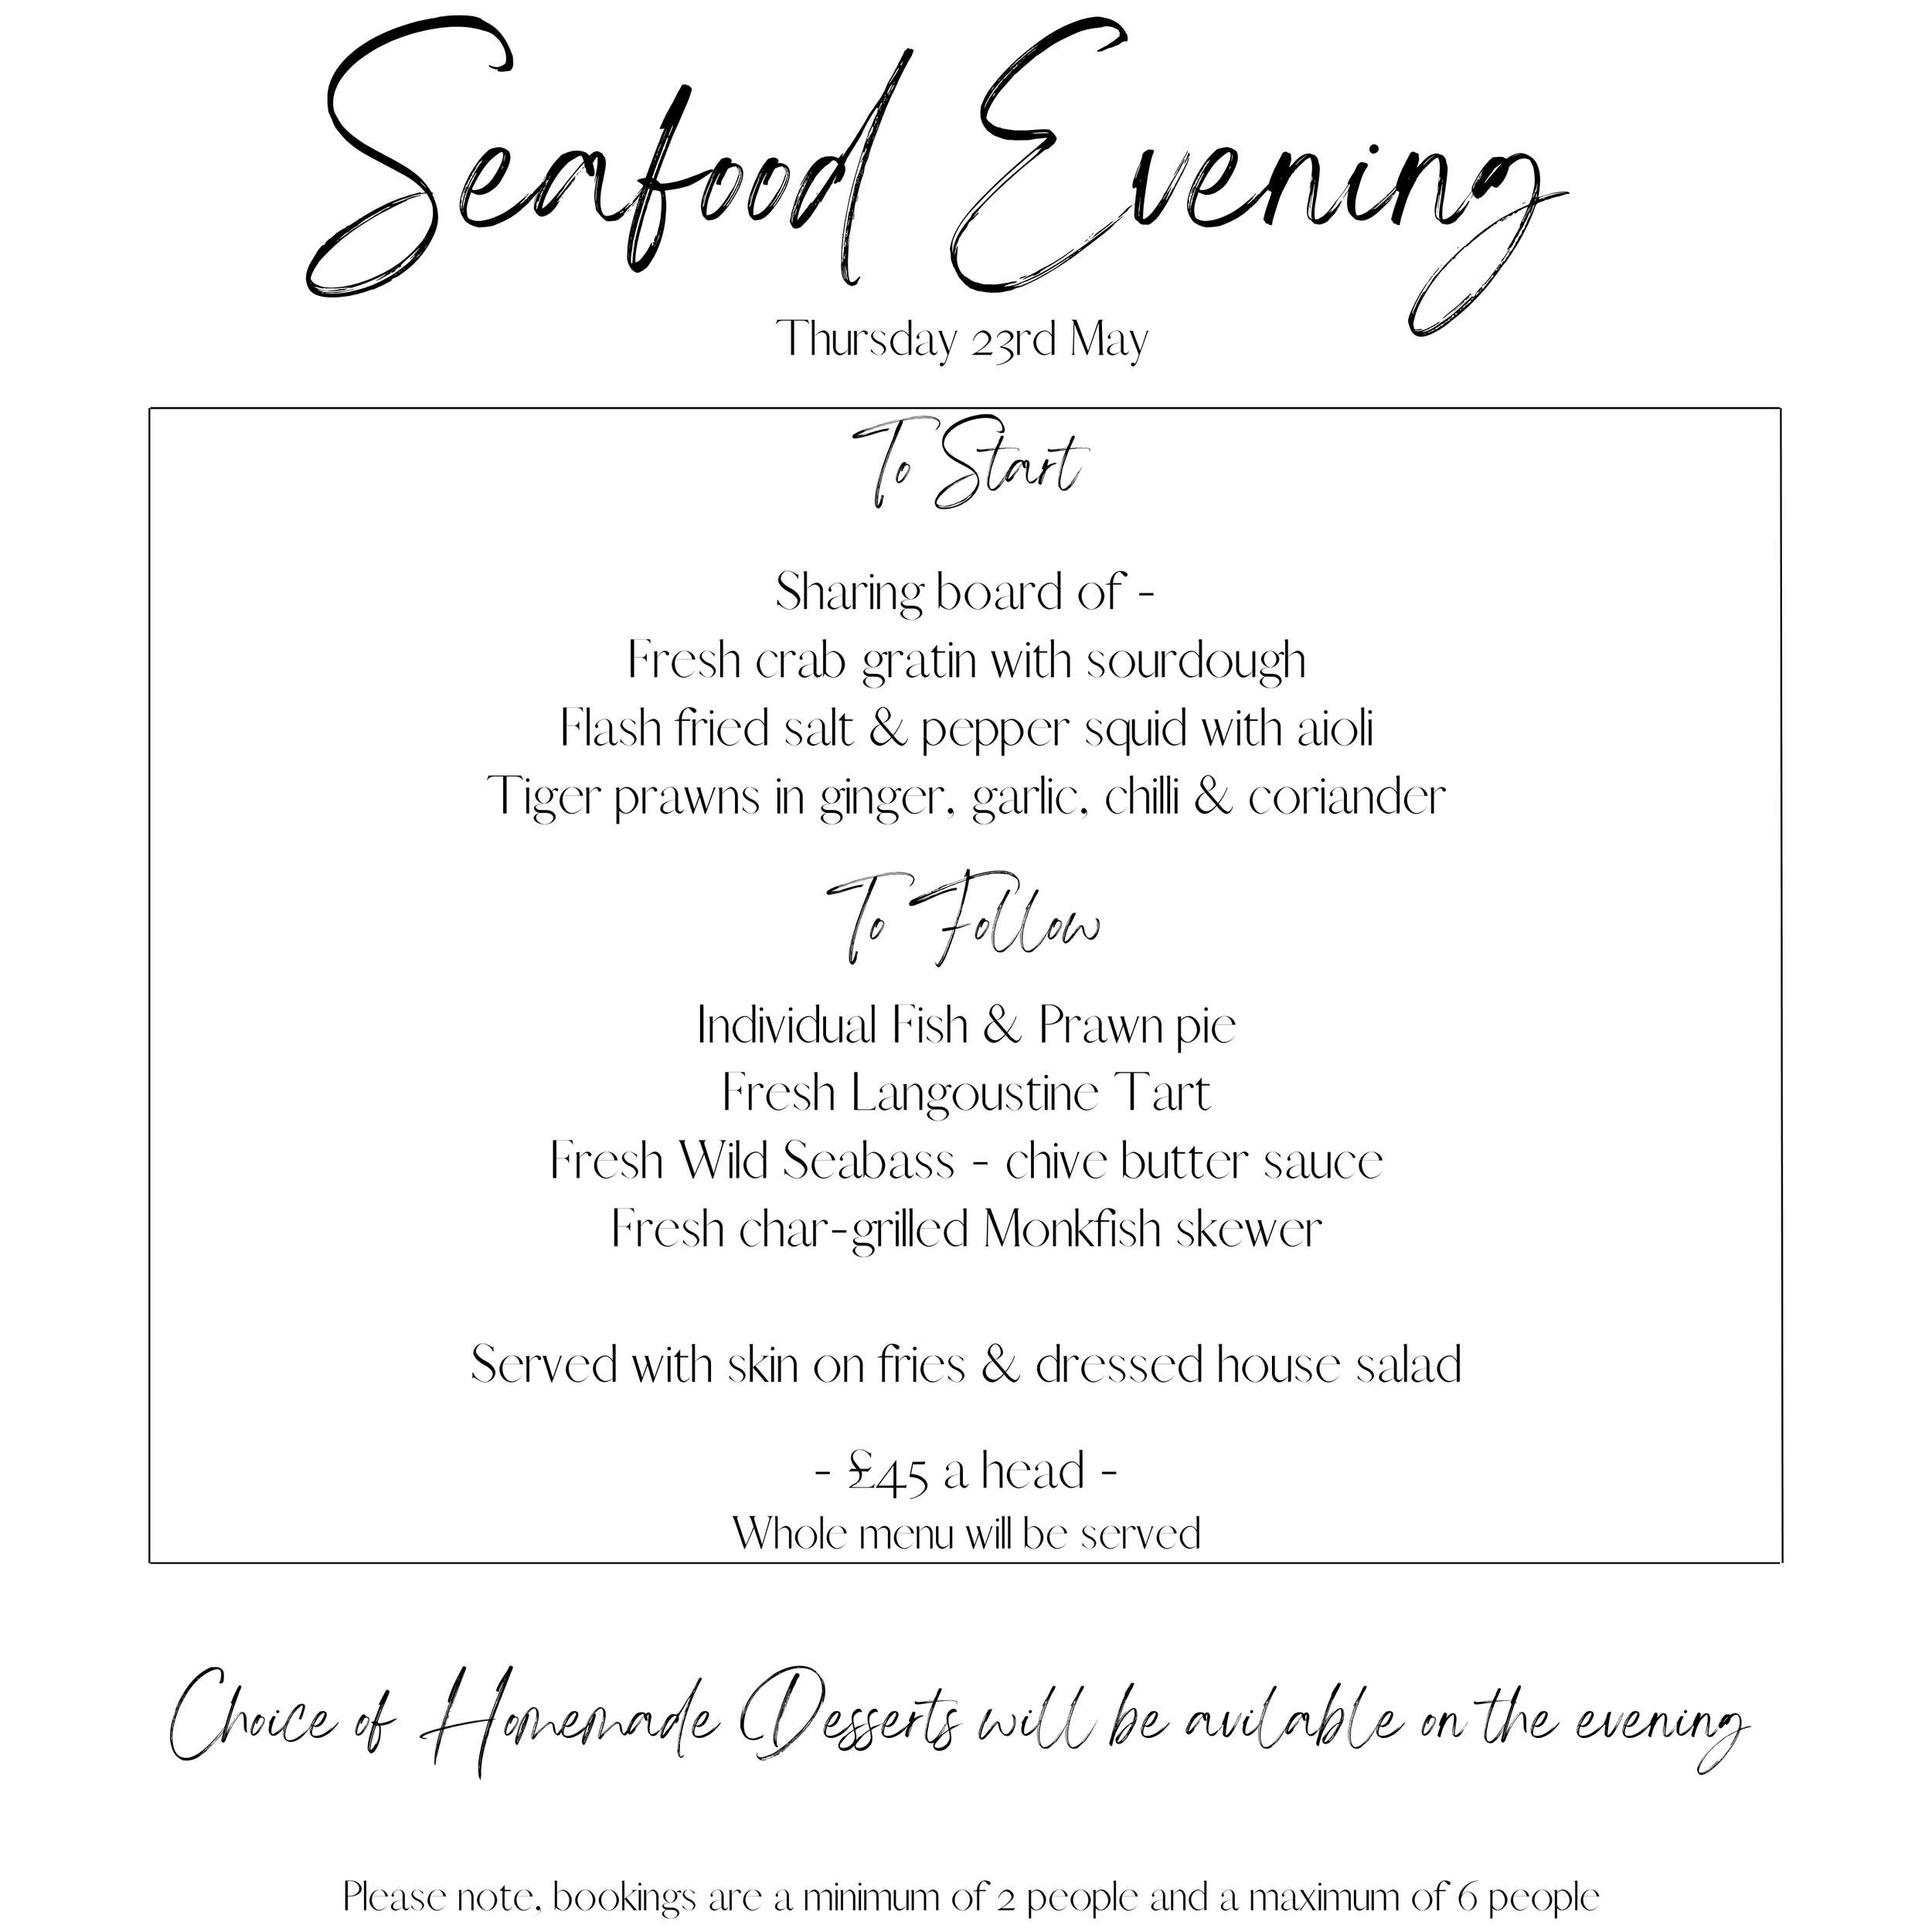 Seafood Evening
Thursday 23rd May
To Start
Sharing board of -
Fresh crab gratin with sourdough
Flash fried salt & pepper squid with aioli
Tiger prawns in ginger, garlic, chilli & coriander
To Follow
Individual Fish & Prawn pie
Fresh Langoustine Tart
Fresh Wild Seabass - chive butter sauce
Fresh char-grilled Monkfish skewer
Served with skin on fries & dressed house salad
- £45 a head -
Whole menu will be served
Choice of Homemade Desserts will be avilable on the evening
Please note, bookings are a minimum of 2 people and a maximum of 6 people